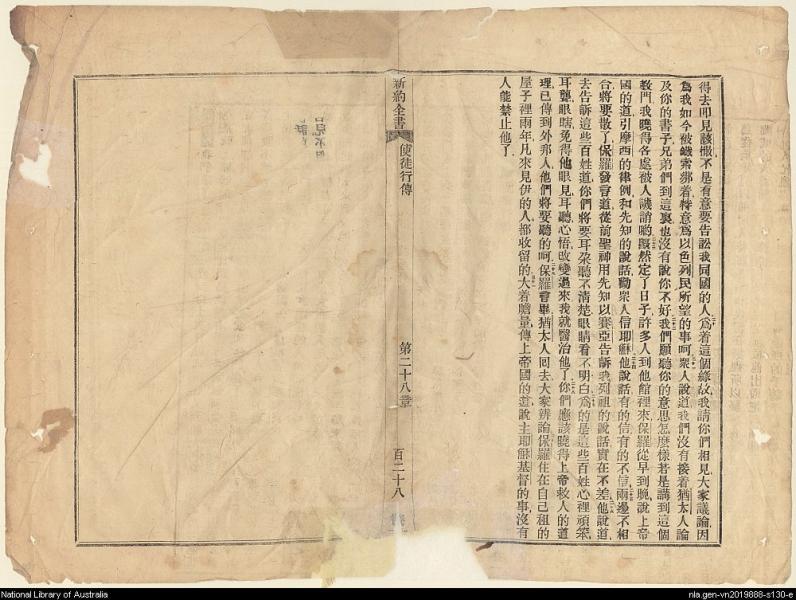 得去叩見該撒不是有意要告訟我同國的人爲着這個緣故我請你們相見大家議論因
爲我如今被鐵索綁着特意爲以色列民所望的事呵衆人說道我們沒有接着猶太人論
及你的書子兄弟們到這裏也沒有說你不好我們願聽你的意思怎麼樣若是講到這個
教門我曉得各處被人譏誚喲旣然定了日子許多人到他館裡來保羅從早到晚說上帝
國的道引摩西的律例和先知的說話勸衆人信耶穌他說話有的信有的不信兩邊不相
合將要散了保羅發言道從前聖神用先知以賽亞告訴我列祖的說話實在不差他說道
去告訴這些百姓道你們將要耳朶聽不清楚眼睛看不明白爲的是這些百姓心裡頑笨
耳聾眼瞎免得他眼見耳聽心悟改變過來我就醫治他了你們應該曉得上帝救人的道
理已傳到外邦人他們將要聽的呵保羅言畢猶太人回去大家辨論保羅住在自己租的
屋子裡兩年凡來見伊的人都收留的大着膽量傳上帝國的道說主耶穌基督的事沒有
人能禁止他了
新約全書 使徒行傳 第二十八章 百二十八
National Library of Australia
nla.gen-vn2019888-s130-e